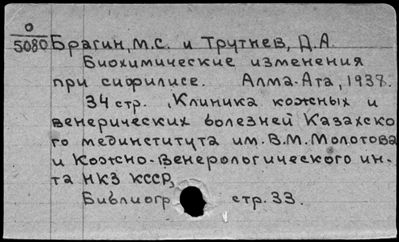 О
5080 Брагин, М.С. и Трутнев, Д.А
Биохимические изменения
при сифилисе. Алма-Ата, 1938.
34 стр. (Клиника кожных и
венерических болезней Казахско
го мединститута им. В.М. Молотова
и Кожно-Венерологического ин-
та НКЗ КССР,
Библиогр стр. 33.